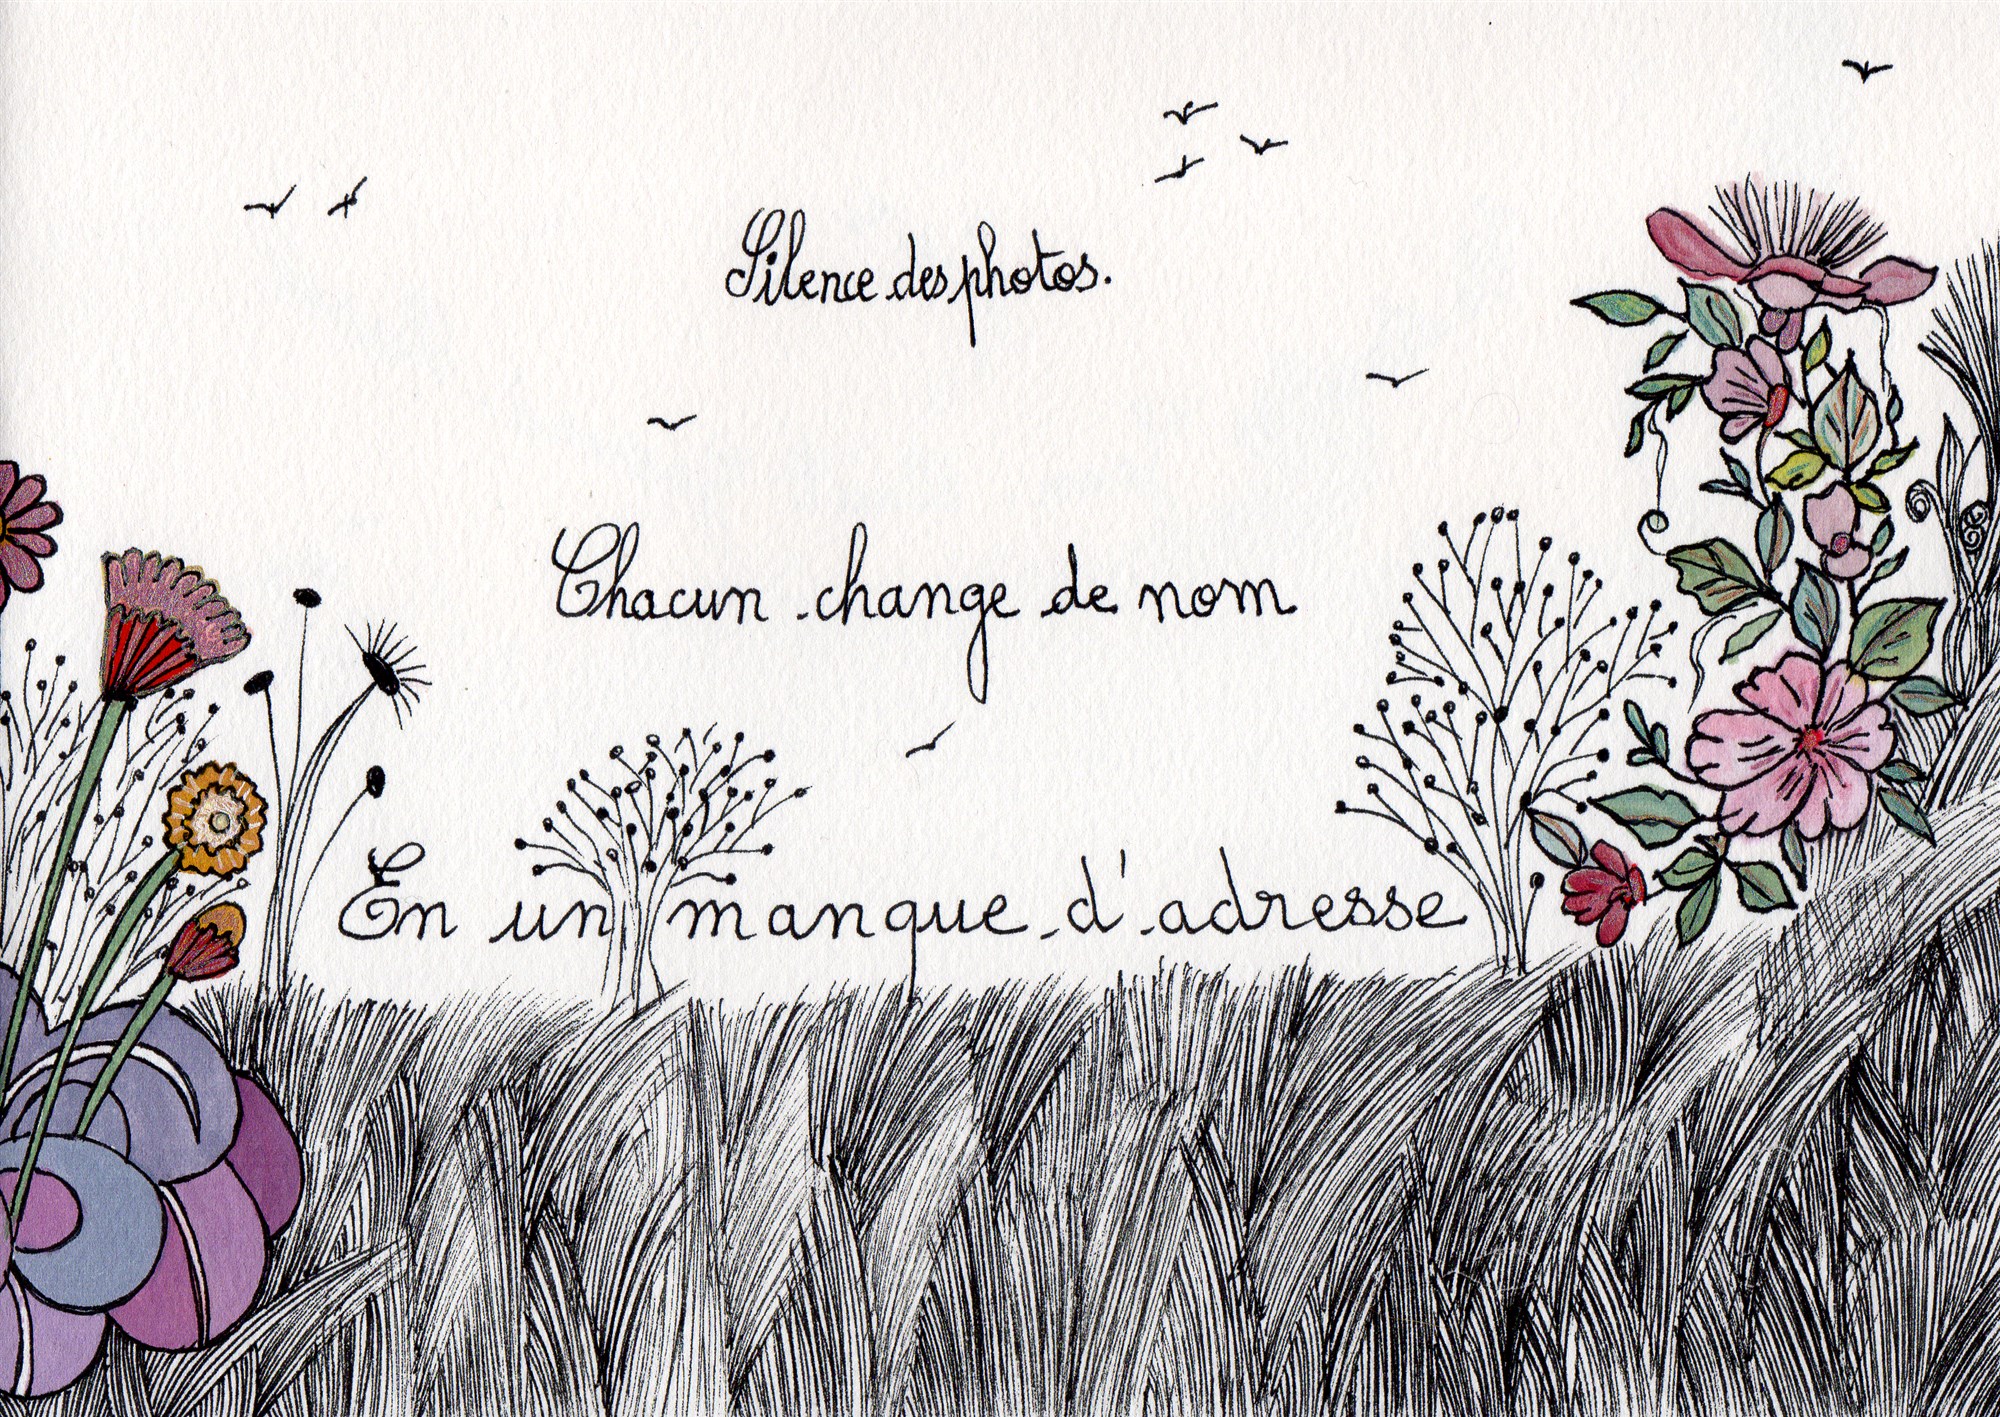 Silence des photos.
Chacun change de nom
En un manque d'adresse